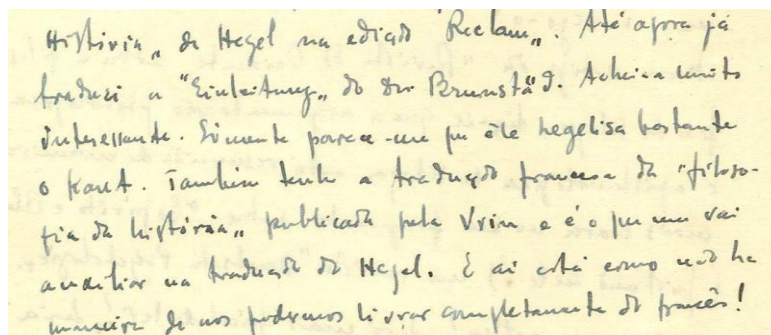 História„ de Hegel na edição "Reclam„. Até agora já
traduzi a "Einleitung„ do Dr. Brunstäd. Achei-a muito
interessante. Sòmente parece-me que êle hegelisa bastante
o Kant. Também tenho a tradução francesa da "filoso-
fia da história„ publicada pela Vrin e é o que me vai
auxiliar na tradução do Hegel. E aí está como não ha
maneira de nos podermos livrar completamente do francês!